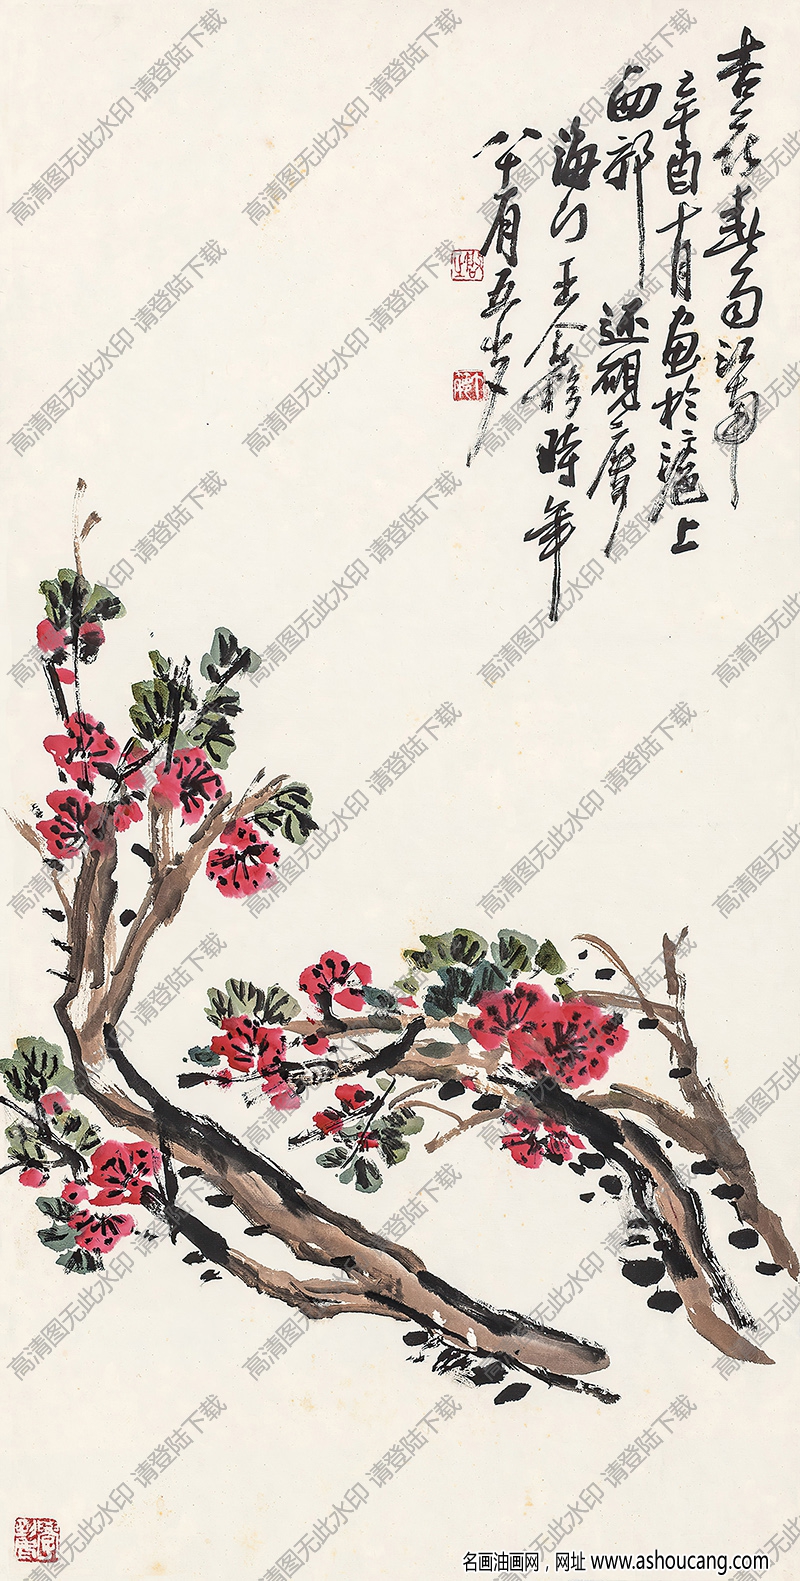 杏花春雨江南
辛酉十月画於滬上
西郊還硯齋
海门王个簃時年
八十有五岁
高清图无此水印 请登陆下载
名画油画网，网址 www.ashoucang.com